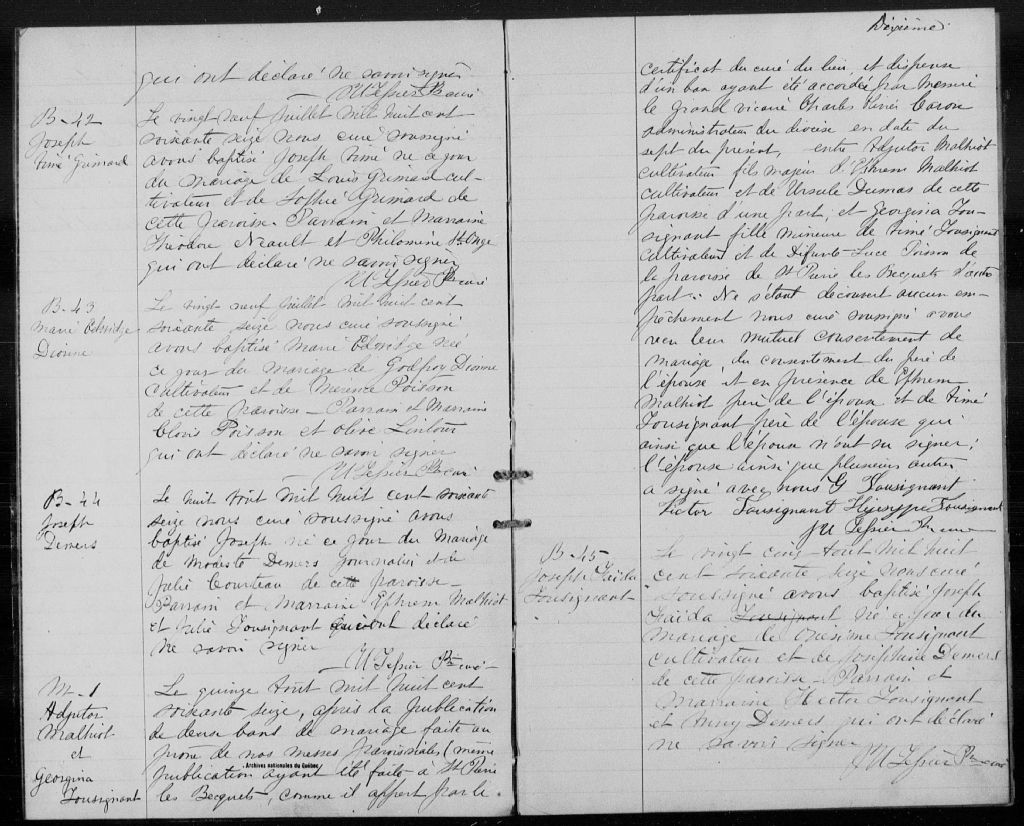 qui ont déclaré ne savoir signer
M Tessier Ptre curé
B-42
Joseph
Aimé Grimard
Le vingt neuf Juillet mil huit cent
soixante seize nous curé soussigné
avons baptisé Joseph Aimé né ce jour
du mariage de Louis Grimard cul-
tivateur et de Sophie Grimard de
cette paroisse. Parrain et Marraine
Théodore Neault et Philomène St Onge
qui ont déclaré ne savoir signer
M Tessier Ptre curé
B-43
Marie
Dionne
Le vingt neuf Juillet mil huit cent
soixante seize nous curé soussigné
avons baptisé Marie née
ce jour du mariage de Godfroy Dionne
Cultivateur et de Poisson
de cette Paroisse - Parrain et Marraine
Clovis Poisson et Olive
qui ont déclaré ne savoir signer
M Tessier Ptre curé
B-44
Joseph
Demers
Le huit Août mil huit cent soixante
seize nous curé soussigné avons
baptisé Joseph né ce jour du mariage
de Modeste Demers Journalier et de
Julie Courteau de cette paroisse -
Parrain et Marraine Ephrem Malhiot
et Julie Tousignant qui ont déclaré
ne savoir signer
M Tessier Ptre curé
M-1
Adjutor
Malhiot
et
Georgina
Tousignant
Le quinze Août mil huit cent
soixante seize, après la publication
de deux bans de mariage faite au
prône de nos messes paroissiales (même
publication ayant été faite à St Pierre
Archives nationales du Québec
les Becquets, comme il appert par le
Dixième
certificat du curé du lieu, et dispense
d'un ban ayant été accordée par Messire
le grand vicaire Charles Caron
administrateur du diocèse en date du
sept du présent, entre Adjutor Malhiot
cultivateur fils majeur d'Ephrem Malhiot
cultivateur et de Ursule Dumas de cette
paroisse d'une part, et Georgina Tou-
signant fille mineure de Aimé Tousignant
cultivateur et de Défunte Luce Poisson de
la paroisse de St Pierre les Becquets d'autre
part : Ne s'étant découvert aucun em-
pêchement nous curé soussigné avons
reçu leur mutuel consentement de
mariage, du consentement du père de
l'épouse et en présence de Ephrem
Malhiot père de l'époux et de Aimé
Tousignant père de l'épouse qui
ainsi que l'époux n'ont su signer;
l'épouse ainsi que plusieurs autres
a signé avec nous G Tousignant
Victor Tousignant Tousignant
M Tessier Ptre curé
B-45
Joseph
Tousignant
Le vingt cinq Août mil huit
cent soixante seize nous curé
soussigné avons baptisé Joseph
Tousignant né ce jour du
mariage de Onésime Tousignant
cultivateur et de Joséphine Demers
de cette paroisse - Parrain et
Marraine Hector Tousignant
et Demers qui ont déclaré
ne savoir signer
M Tessier Ptre curé